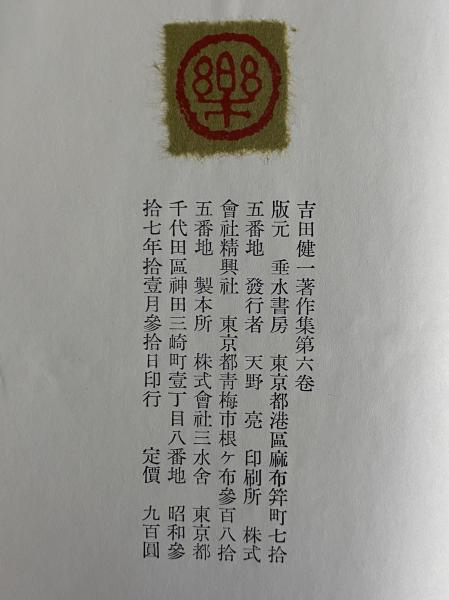 樂
吉田健一著作集第六卷
版元 垂水書房 東京都港區麻布笄町七拾
五番地 發行者 天野 亮 印刷所 株式
會社精興社 東京都靑梅市根ヶ布參百八拾
五番地 製本所 株式會社三水舍 東京都
千代田區神田三崎町壹丁目八番地 昭和參
拾七年拾壹月參拾日印行 定價 九百圓